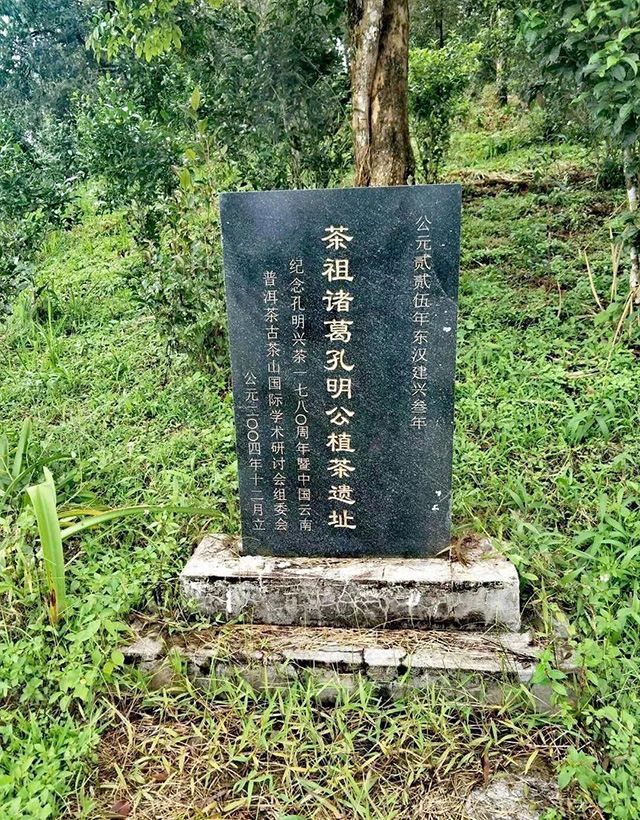 公元贰贰伍年东汉建兴叁年
茶祖诸葛孔明公植茶遗址
纪念孔明兴茶一七八〇周年暨中国云南
普洱茶古茶山国际学术研讨会组委会
公元二〇〇四年十二月立